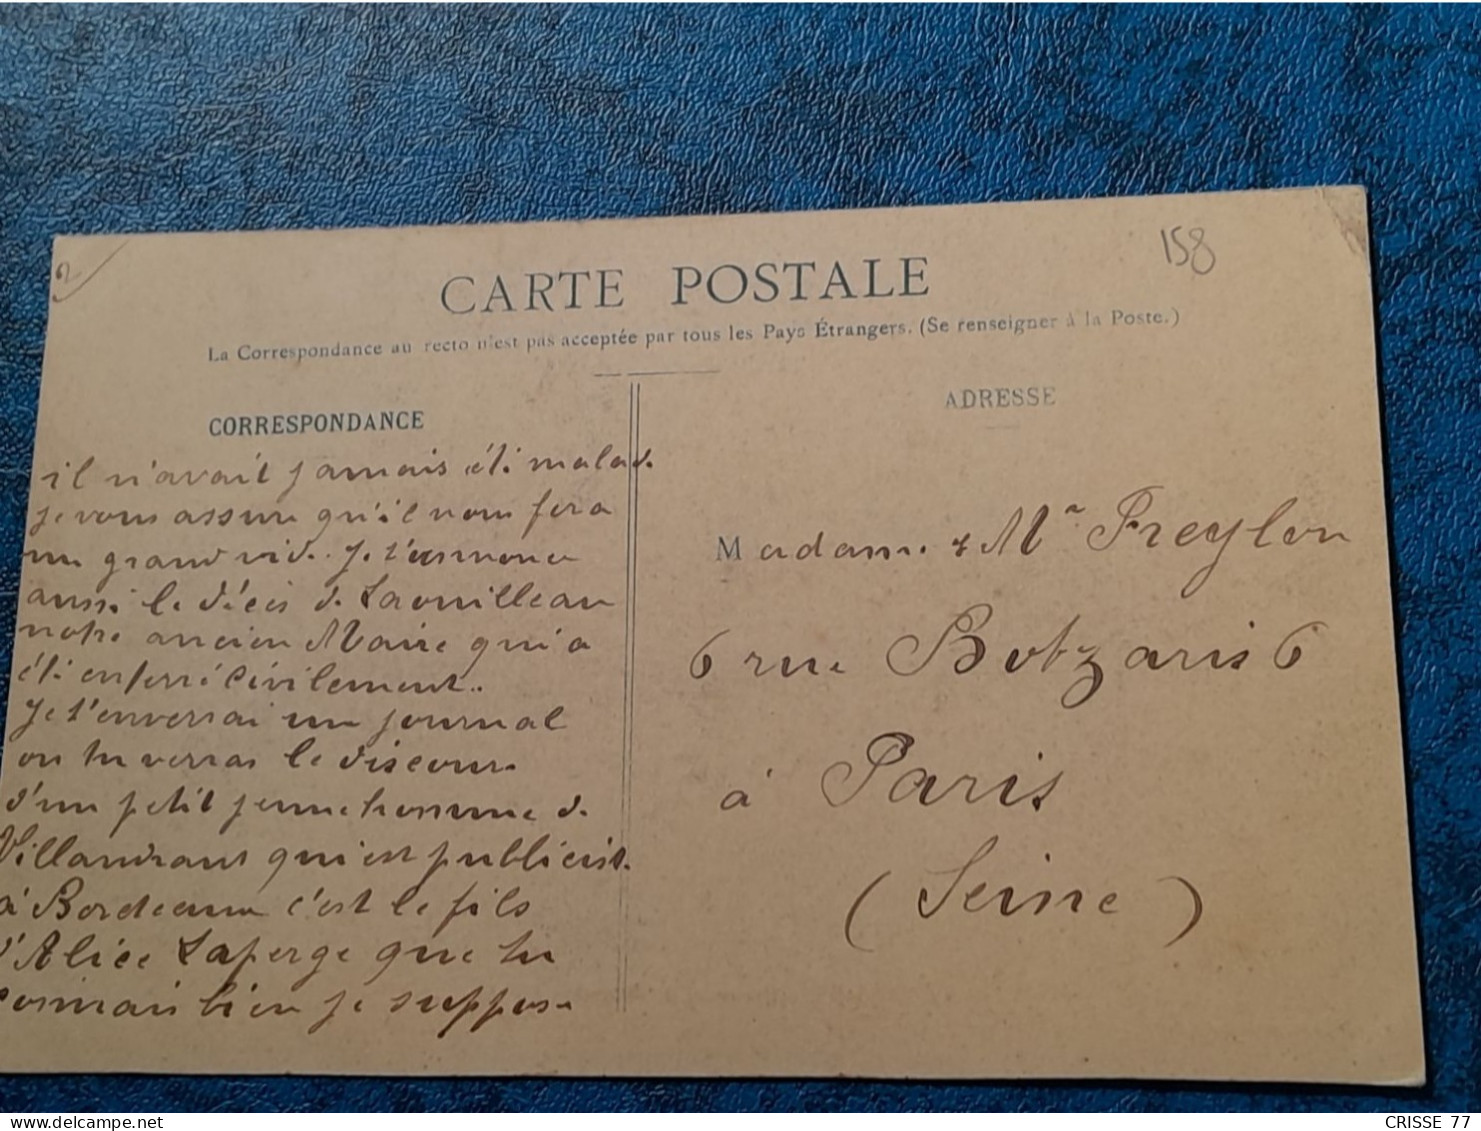 2
158
CARTE POSTALE
La Correspondance au recto n'est pas acceptée par tous les Pays Étrangers. (Se renseigner à la Poste.)
CORRESPONDANCE
ADRESSE
il n'avait jamais été malade
je vous assure qu'il nous fera
un grand vide. Je t'annonce
aussi le décès de
notre ancien Maire qui a
été enterré civilement.
Je t'enverrai un journal
ou tu verras le discours
d'un petit jeune homme de
Villandraut qui est publiciste
à Bordeaux c'est le fils
d'Alice Laferge que tu
connais bien je suppose
Madame & Mr Freylon
6 rue Botzaris 6
à Paris
(Seine)
CRISSE 77